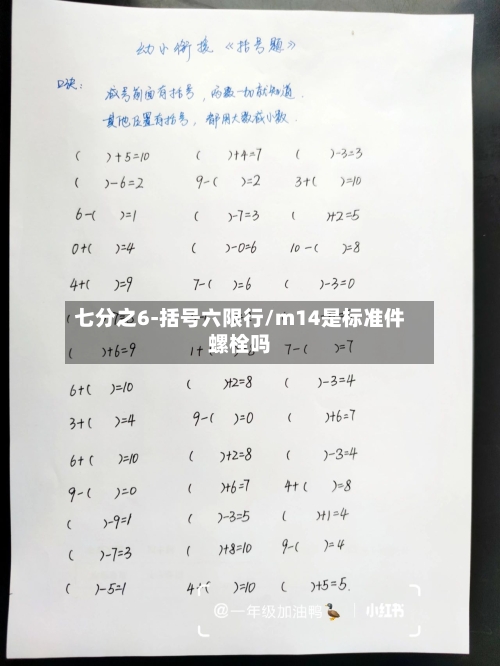 幼小衔接《括号题》
口诀:
减号前面有括号,两数一加就知道.
其他位置有括号,都用大数减小数.
( )+5=10 ( )+4=7 ( )-3=3
( )-6=2 9-( )=2 3+( )=10
6-( )=1 ( )-7=3 ( )+2=5
0+( )=4 ( )-0=6 10-( )=8
4+( )=9 7-( )=6 ( )-3=0
七分之6-括号六限行/m14是标准件
螺栓吗
( )+6=9 1+ 7-( )=7
6+( )=10 ( )+2=8 ( )-3=4
3+( )=4 9-( )=0 ( )+6=7
6+( )=10 ( )+2=8 ( )-3=4
9-( )=0 ( )+6=7 4+( )=8
( )-9=1 ( )-3=5 ( )+1=4
( )-7=3 ( )+8=10 9-( )=4
( )-5=1 4+( )=10 ( )+5=5.
@一年级加油鸭 小红书